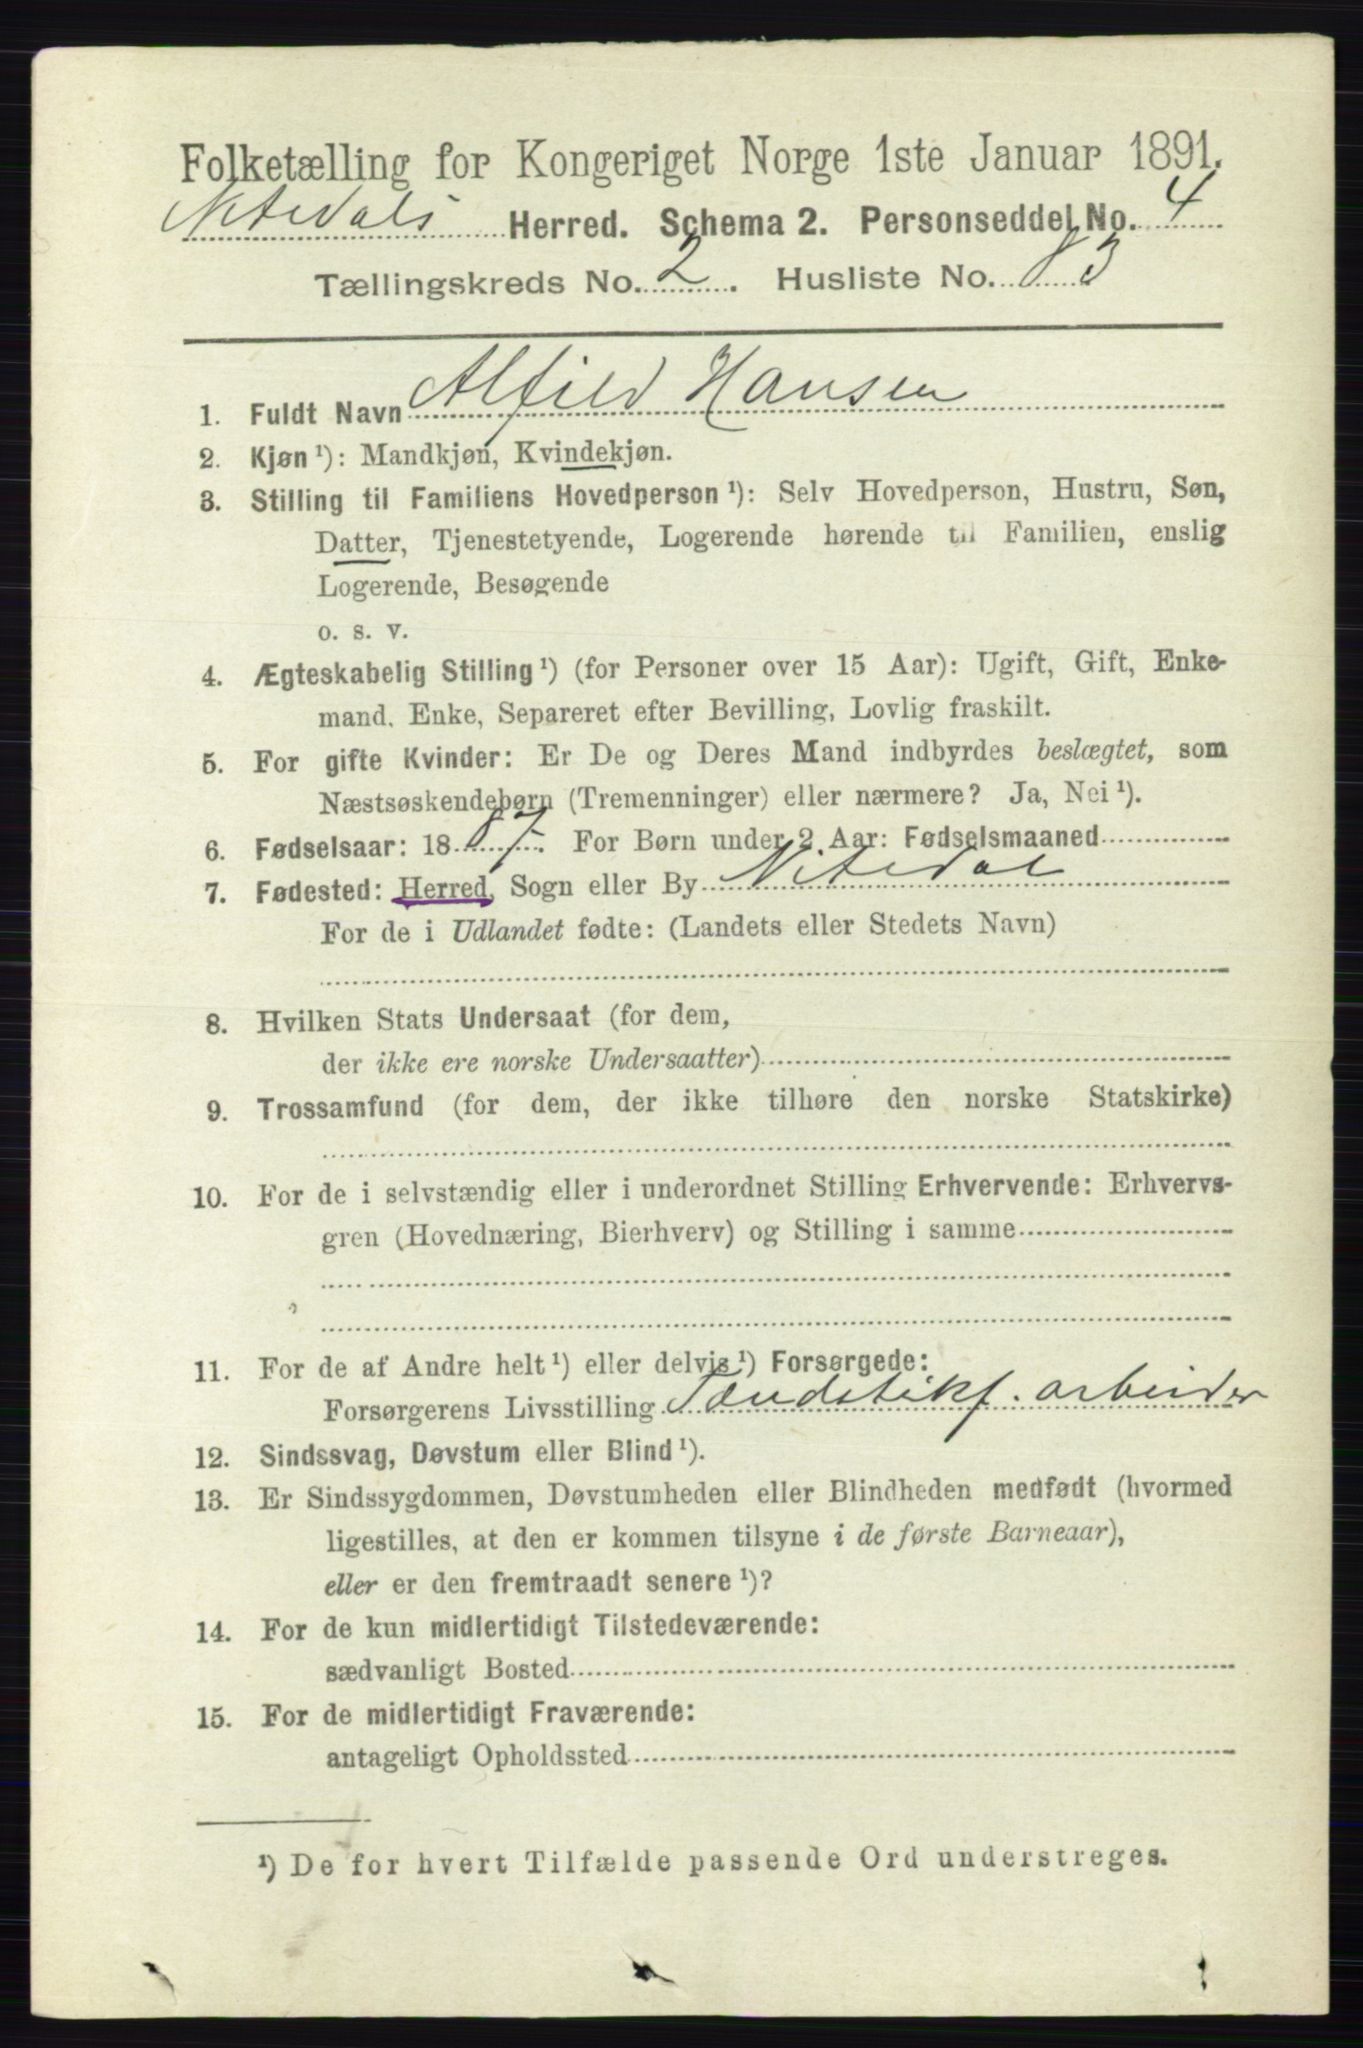 Folketælling for Kongeriget Norge 1ste Januar 1891.
Nitedals Herred. Schema 2. Personseddel No. 4
Tællingskreds No. 2. Husliste No. 83
1. Fuldt Navn Alfild Hansen
2. Kjøn ¹): Mandkjøn, Kvindekjøn.
3. Stilling til Familiens Hovedperson ¹): Selv Hovedperson, Hustru, Søn,
Datter, Tjenestetyende, Logerende hørende til Familien, enslig
Logerende, Besøgende
o. s. v.
4. Ægteskabelig Stilling ¹) (for Personer over 15 Aar): Ugift, Gift, Enke-
mand, Enke, Separeret efter Bevilling, Lovlig fraskilt.
5. For gifte Kvinder: Er De og Deres Mand indbyrdes beslægtet, som
Næstsøskendebørn (Tremenninger) eller nærmere? Ja, Nei ¹).
6. Fødselsaar: 1887. For Børn under 2 Aar: Fødselsmaaned
7. Fødested: Herred, Sogn eller By Nitedal
For de i Udlandet fødte: (Landets eller Stedets Navn)
8. Hvilken Stats Undersaat (for dem,
der ikke ere norske Undersaatter)
9. Trossamfund (for dem, der ikke tilhøre den norske Statskirke)
10. For de i selvstændig eller i underordnet Stilling Erhvervende: Erhvervs-
gren (Hovednæring, Bierhverv) og Stilling i samme
11. For de af Andre helt ¹) eller delvis ¹) Forsørgede:
Forsørgerens Livsstilling Tændstikf. arbeider
12. Sindssvag, Døvstum eller Blind ¹).
13. Er Sindssygdommen, Døvstumheden eller Blindheden medfødt (hvormed
ligestilles, at den er kommen tilsyne i de første Barneaar),
eller er den fremtraadt senere ¹)?
14. For de kun midlertidigt Tilstedeværende:
sædvanligt Bosted
15. For de midlertidigt Fraværende:
antageligt Opholdssted
¹) De for hvert Tilfælde passende Ord understreges.